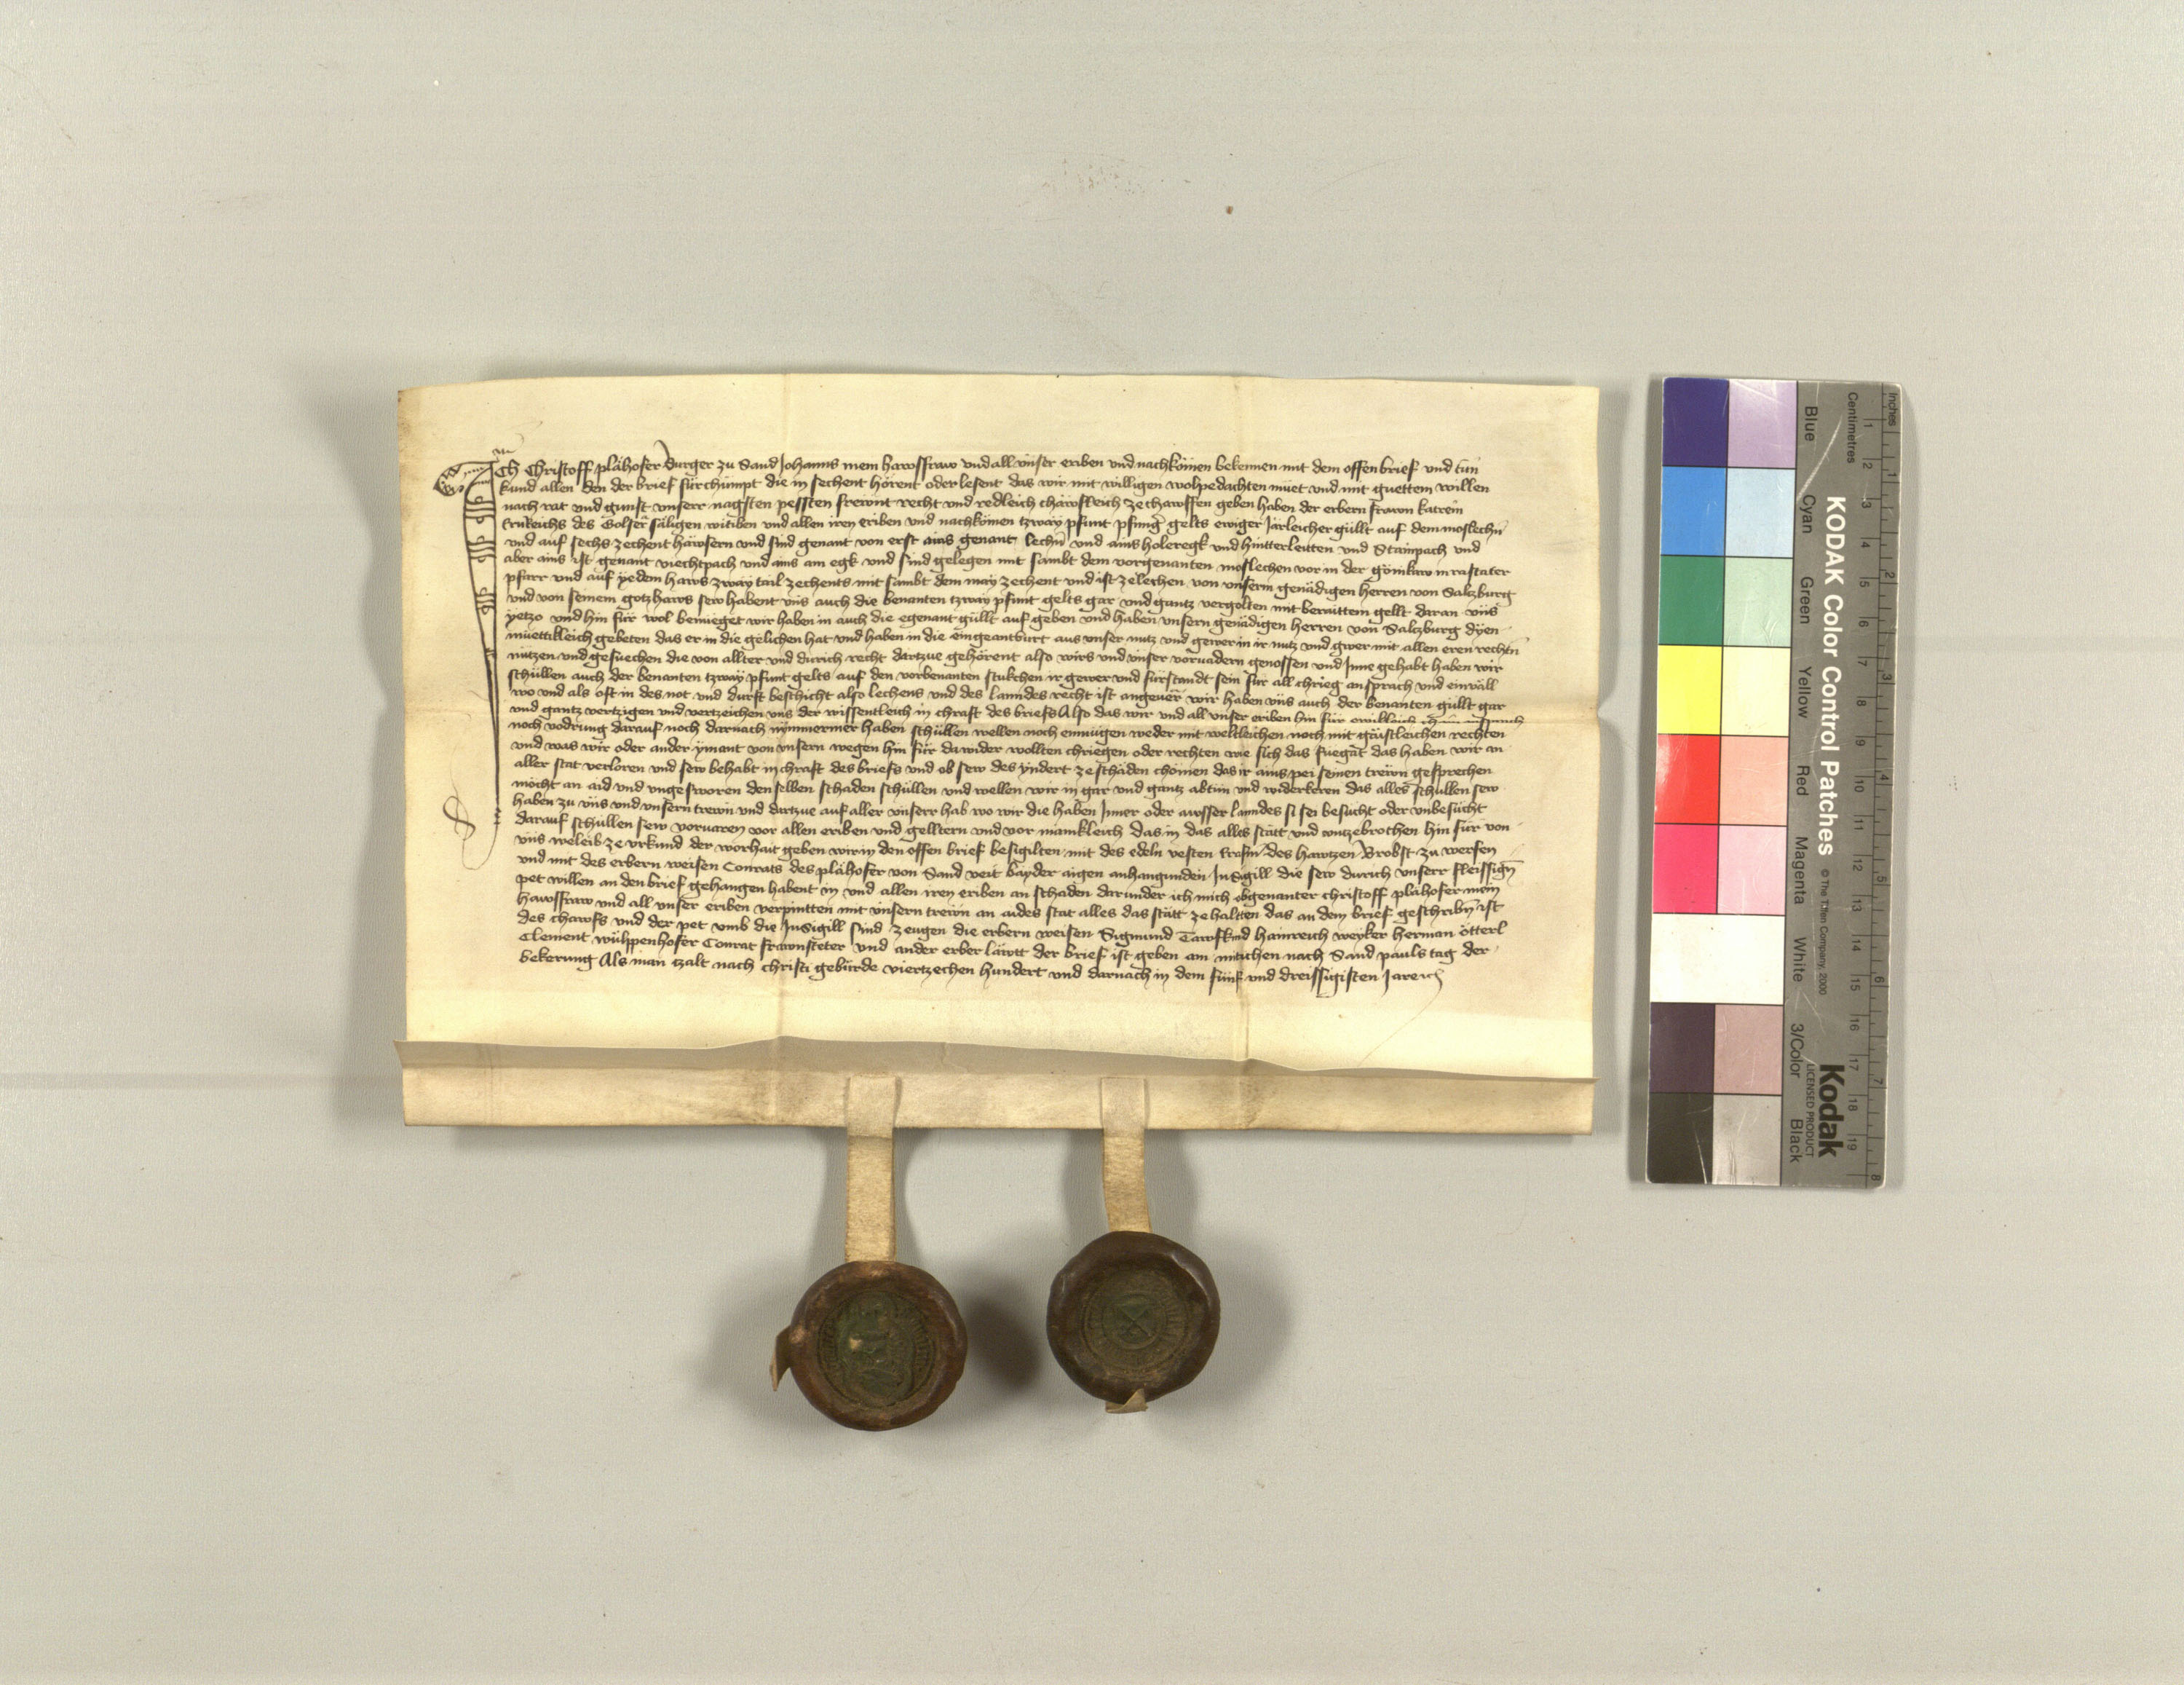 Ich Christoff plähofer Burger zu Sand Johanns mein hawsfraw und all unser eriben und nachkömen bekennen mit dem offen brief und tun
kund allen den der brief fürchümpt die in sechent hörent oder lesent das wir mit willigen wolpedachten müet und mit guettem willen
nach rat und gunst unserr nagsten pessten frewnt recht und redleich chawfleich ze chawffen geben haben der erbern frawn katrein
des Golser säligen witiben und allen iren eriben und nachkömen tzway pfunt pfennig gelts ewiger Järleicher güllt auf dem moslechn
und auf sechs zechent häwsern und sind genant von erst ains genant lechn und ains holeregk und hintterleitten und Stainpach und
aber ains ist genant viechtpach und ains am egk und sind gelegen mit sambt dem vorgenanten moslechen vor in der in rastater
pfarr und auf yedem haws zway tail zechents mit sambt dem may zechent und ist ze lechen von unserm genädigen herren von Salzburg
und von seinem gotzhaws sew habent uns auch die benanten tzway pfunt gelts gar und gantz vergolten mit beraittem gellt daran uns
yetzo und hin für wol benueget wir haben in auch die egenant güllt auf geben und haben unsern genädigen herren von Salzburg dyen
müettikleich gebeten das er in die gelichen hat und haben in die eingeantburt aus unser nutz und gewer in ir nutz und gwer mit allen eren rechtn
nützen und gesuechen die von allter und durich recht dartzue gehörent also wirs und unser vorvadern genossen und Jnne gehabt haben wir
schüllen auch der benanten tzway pfunt gelts auf den vorbenanten stukchen ir gewer und fürstandt sein für all chrieg ansprach und einväll
wo und als oft in des not und durft beschicht also lechens und des lanndes recht ist angever wir haben uns auch der benanten güllt gar
und gantz vertzigen und vertzeichen uns der wissentleich in chraft des briefs Also das wir und all unser eriben hin für ewikleich chain ansprach
noch vodrung darauf noch darnach nymmermer haben schüllen wellen noch enmügen weder mit weltleichen noch mit gäistleichen rechten
und was wir oder ander ymant von unsern wegen hin für da wider wollten chriegen oder rechten wie sich das fuegat das haben wir an
aller stat verloren und sew behabt in chraft des briefs und ob sew des yndert ze schäden chömen das ir ains pei seinen trewn gesprechen
möcht an aid und ungesworen den selben schaden schüllen und wellen wir in gar und gantz abtun und widerkeren das alles schullen sew
haben zu uns und unsern trewn und dartzue auf aller unserr hab wo wir die haben Jnner oder awsser lanndes si sei besücht oder unbesücht
darauf schüllen sew vorvaren vor allen eriben und gelltern und vor mänikleich das in das alles stätt und untzebrochen hin für von
uns weleib ze urkund der worhait geben wir in den offen brief besigilten mit des edeln vesten des hawtzen Brobst zu werfen
und mit des erbern weisen Conrats des plähofer von Sand veit bayder aigen anhangunden Jnsigill die sew durich unserr fleissign
pet willen an den brief gehangen habent in und allen iren eriben an schaden darunder ich mich obgenanter christoff plähofer mein
hawsfraw und all unser eriben verpintten mit unsern trewn an aides stat alles das stätt ze haltten das an dem brief geschribn ist
des chawfs und der pet umb die Jnsigill sind zeugen die erbern weisen Sigmund hainreich weyker herman ötterl
Clement wülppenhofer Conrat frawnsteter und ander erber läwtt der brief ist geben am mitichen nach Sand pauls tag der
bekerung Als man tzalt nach christi gebürde viertzechen hundert und darnach in dem fünf und dreissigisten Jare
KODAK Color Control Patches
© The Tiffen Company, 2000
Kodak
LICENSED PRODUCT
Inches
Centimetres
Blue
Cyan
Green
Yellow
Red
Magenta
White
3/Color
Black
1
2
3
4
5
6
7
8
9
10
11
12
13
14
15
16
17
18
19
1
2
3
4
5
6
7
8